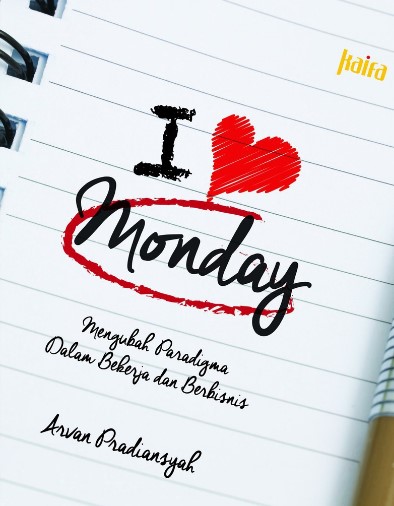 kaifa
I
Monday
Mengubah Paradigma
Dalam Bekerja dan Berbisnis
Arvan Pradiansyah